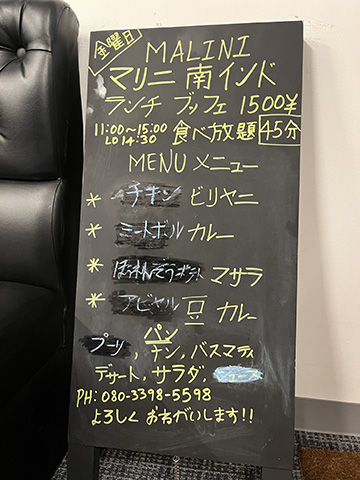 金曜日
MALINI
マリニ 南インド
ランチ ブッフェ 1500¥
11:00~15:00 食べ放題 45分
LO 14:30
MENU メニュー
* チキン ビリヤニ
* ミートボル カレー
* ほうれんそうポテト マサラ
* アビヤル 豆 カレー
パン
プーリ, ナン, バスマティ
デザート, サラダ,
PH: 080-3398-5598
よろしく おねがいします!!